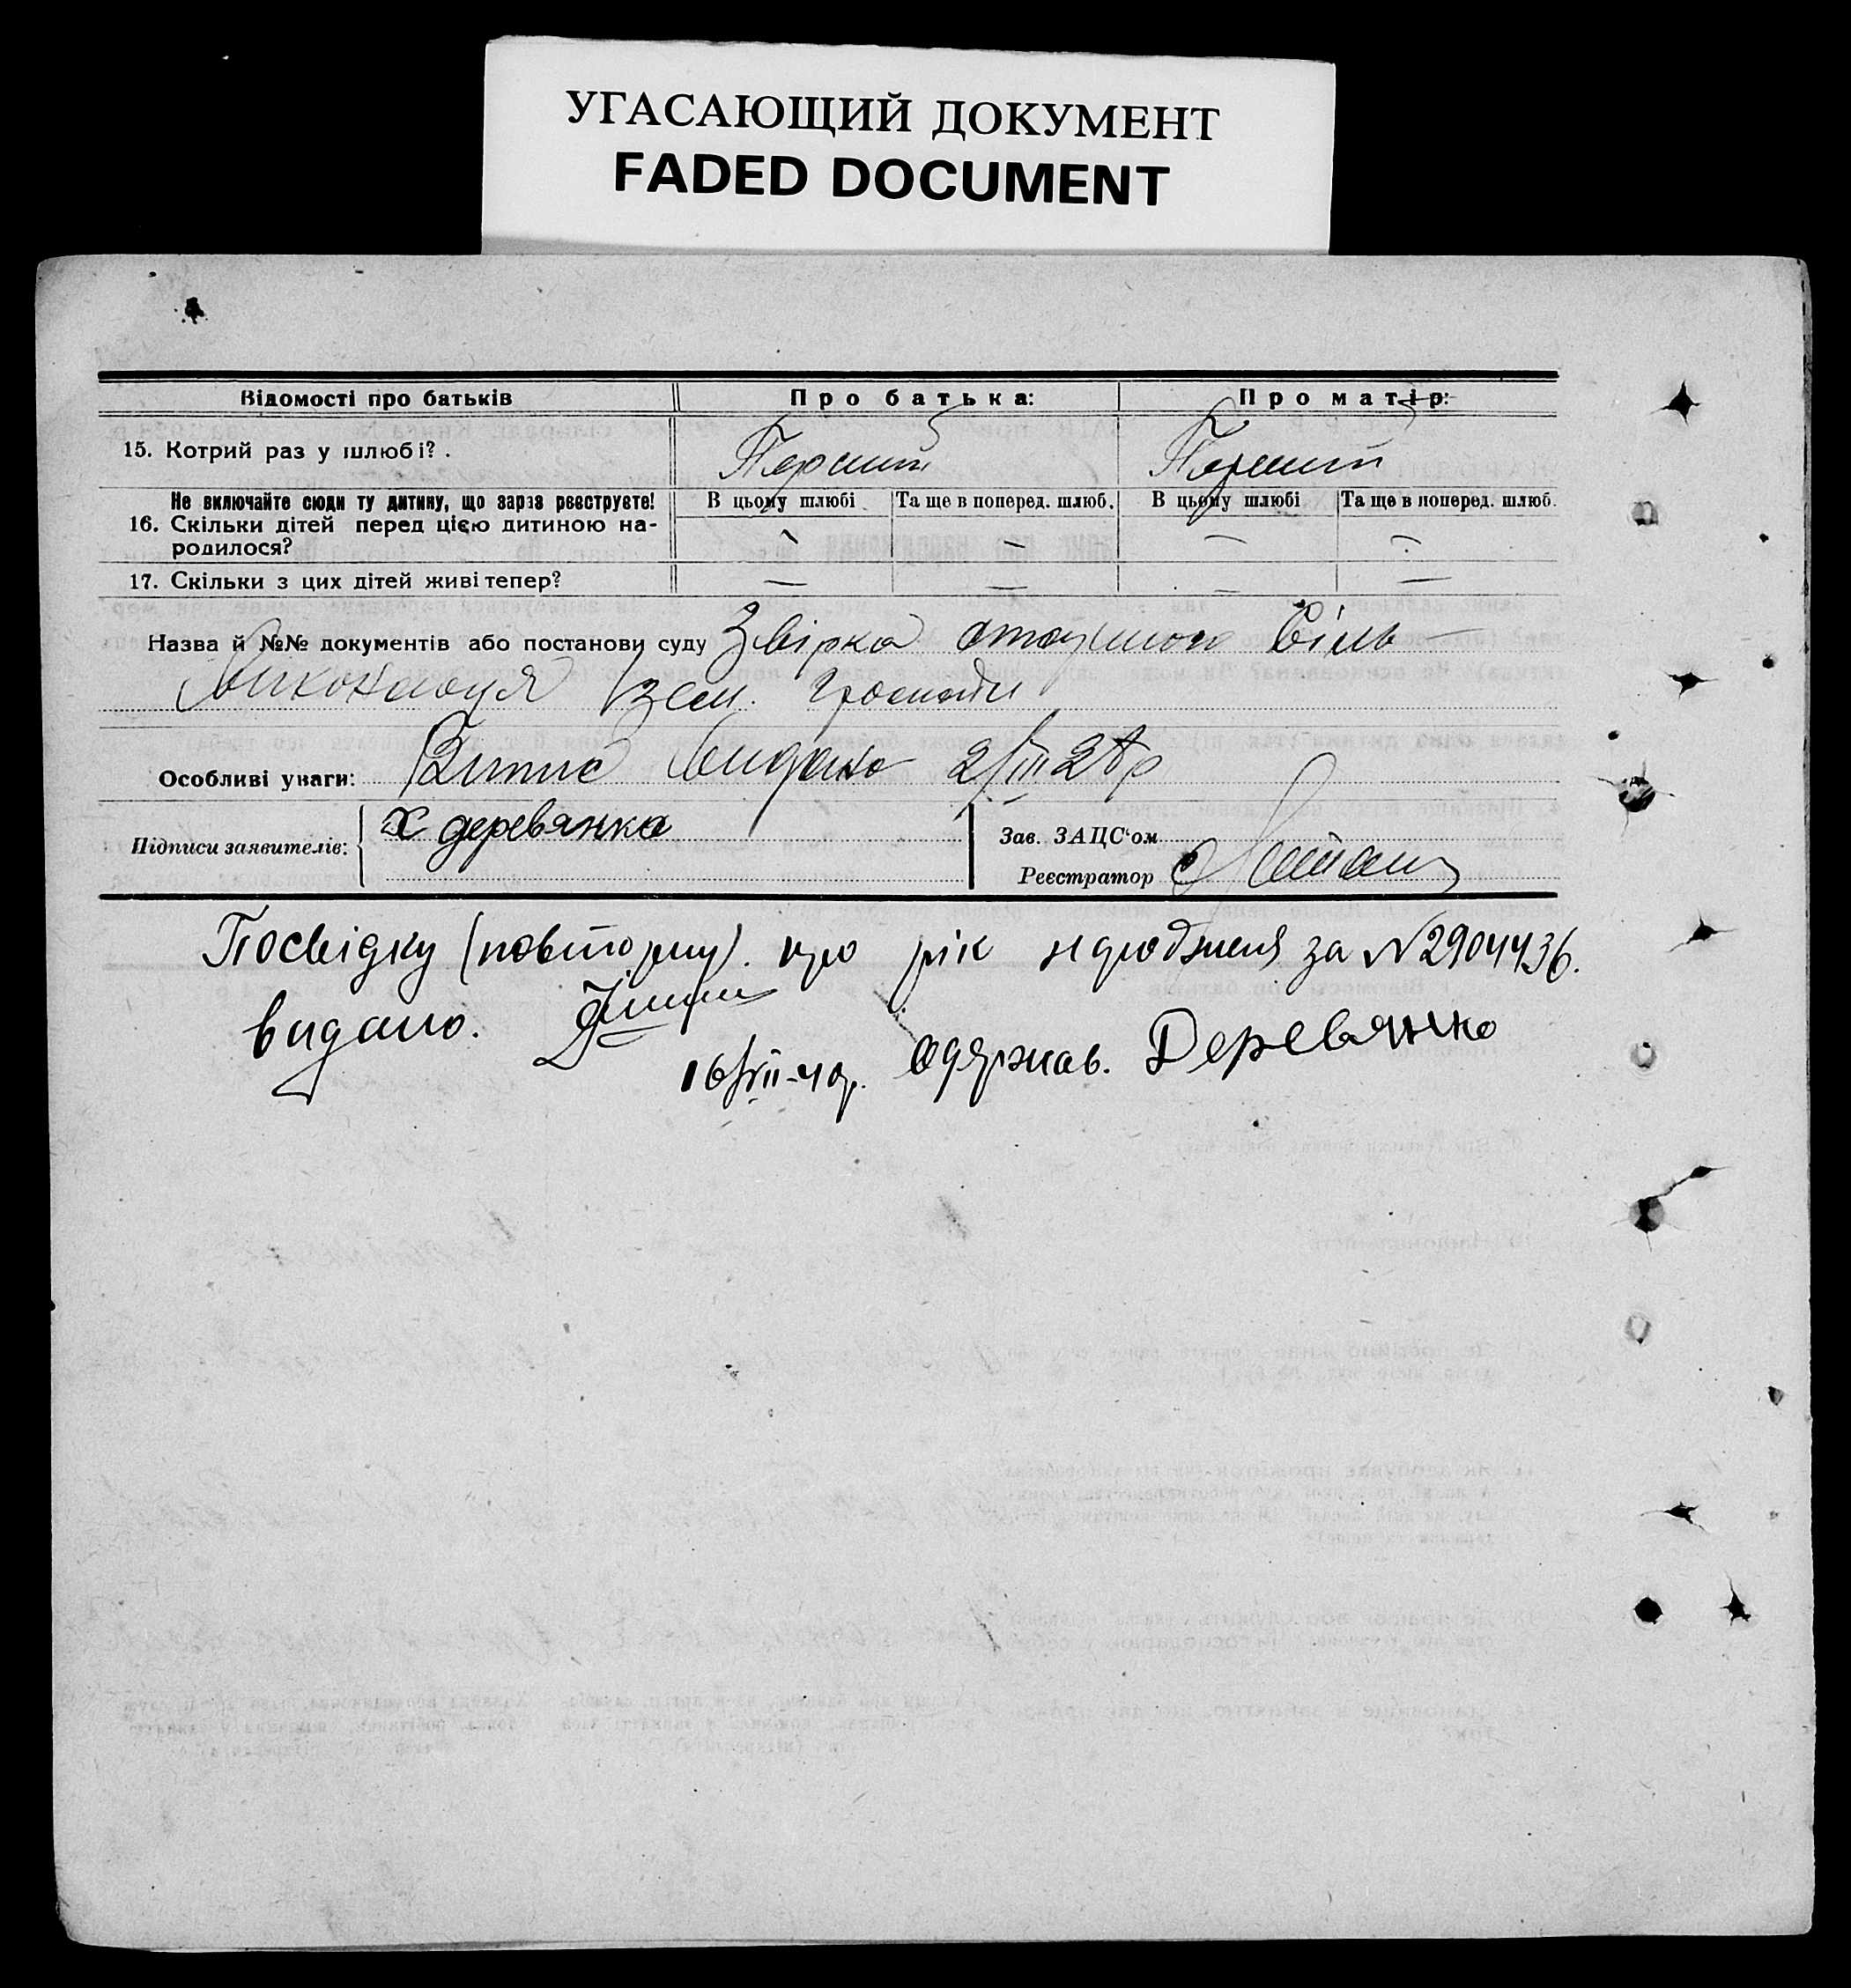 УГАСАЮЩИЙ ДОКУМЕНТ
FADED DOCUMENT
Відомості про батьків Про батька: Про матір:
15. Котрий раз у шлюбі? . Перший Перший
Не включайте сюди ту дитину, що зараз реєструєте! В цьому шлюбі Та ще в поперед. шлюб. В цьому шлюбі Та ще в поперед. шлюб.
16. Скільки дітей перед цією дитиною на- — — — —
родилося?
17. Скільки з цих дітей живі тепер? — — — —
Назва й №№ документів або постанови суду Звірка
зем. громади
Особливі уваги: Випис видано 2/III 28р
Підписи заявителів: Х деревянко Зав. ЗАЦС'ом
Реєстратор
Посвідку (повторну). про рік народження за №2904436.
видано.
16/VII-40р. Одержав. Деревянко